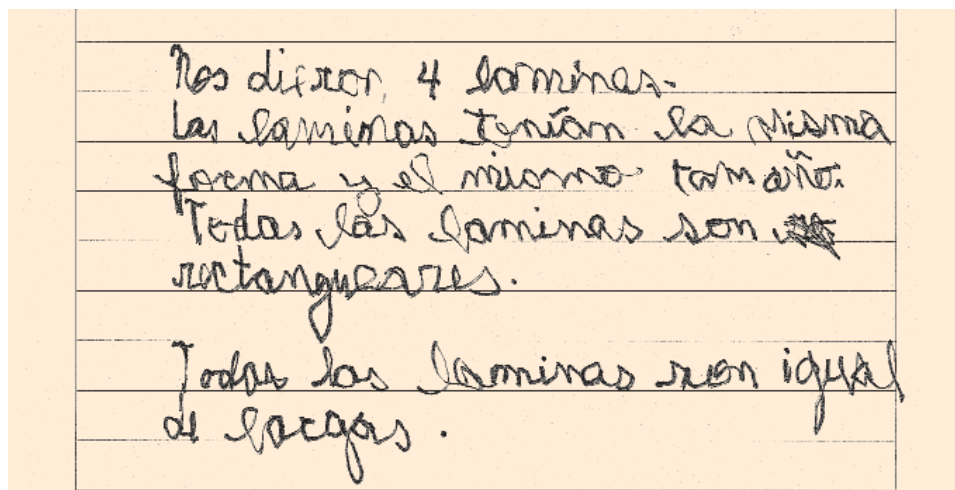 Nos dieron 4 laminas.
Las laminas tenían la misma
forma y el mismo tamaño.
Todas las laminas son
rectangulares.
Todas las laminas son igual
de largas.